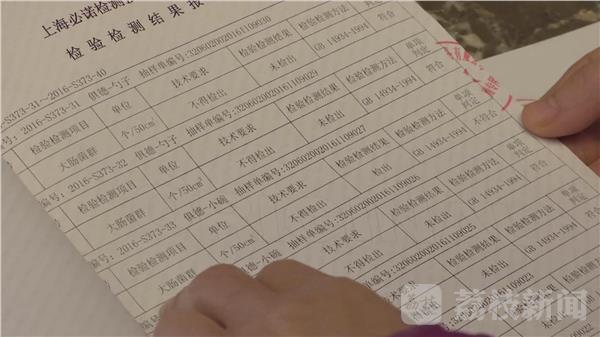 上海必诺检测
检验检测结果报
S373-31~2016-S373-40
编号: 2016-S373-31 俱德-勺子 抽样单编号:3206020020161109030
检验检测项目 单位 技术要求 检验检测结果 检验检测方法
大肠菌群 个/50cm² 不得检出 未检出 GB 14934-1994 符合
编号: 2016-S373-32 俱德-勺子 抽样单编号:3206020020161109029
检验检测项目 单位 技术要求 检验检测结果 检验检测方法 单项判定
大肠菌群 个/50cm² 不得检出 未检出 GB 14934-1994 符合
编号: 2016-S373-33 俱德-小碗 抽样单编号:3206020020161109027
检验检测项目 单位 技术要求 检验检测结果 检验检测方法 单项判定
大肠菌群 个/50cm² 不得检出 检出 GB 14934-1994 不符合
俱德-小碗 抽样单编号:3206020020161109026
技术要求 检验检测结果 检验检测方法 单项判定
不得检出 未检出 GB 14934-1994 符合
抽样单编号:3206020020161109025
检验检测结果 检验检测方法 单项判定
未检出 GB 14934-1994 符合
荔枝新闻